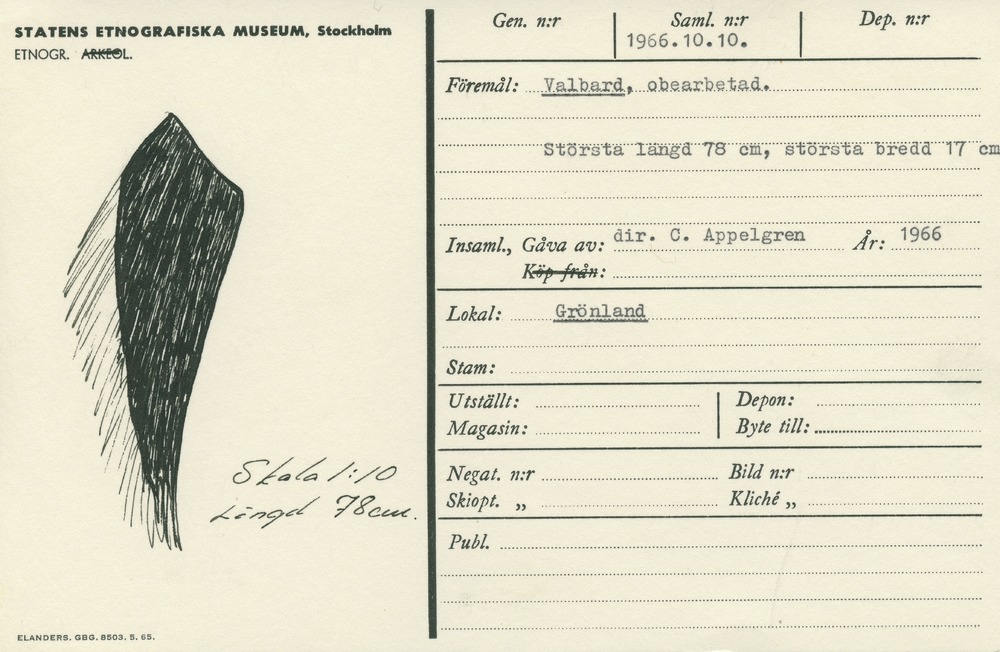 STATENS ETNOGRAFISKA MUSEUM, Stockholm
ETNOGR. ARKEOL.
Skala 1:10
Längd 78 cm.
ELANDERS. GBG. 8503. 5. 65.
Gen. n:r Saml. n:r Dep. n:r
1966.10.10.
Föremål: Valbard, obearbetad.
Största längd 78 cm, största bredd 17 cm
Insaml., Gåva av: dir. C. Appelgren År: 1966
Köp från:
Lokal: Grönland
Stam:
Utställt: Depon:
Magasin: Byte till:
Negat. n:r Bild n:r
Skiopt. „ Kliché „
Publ.